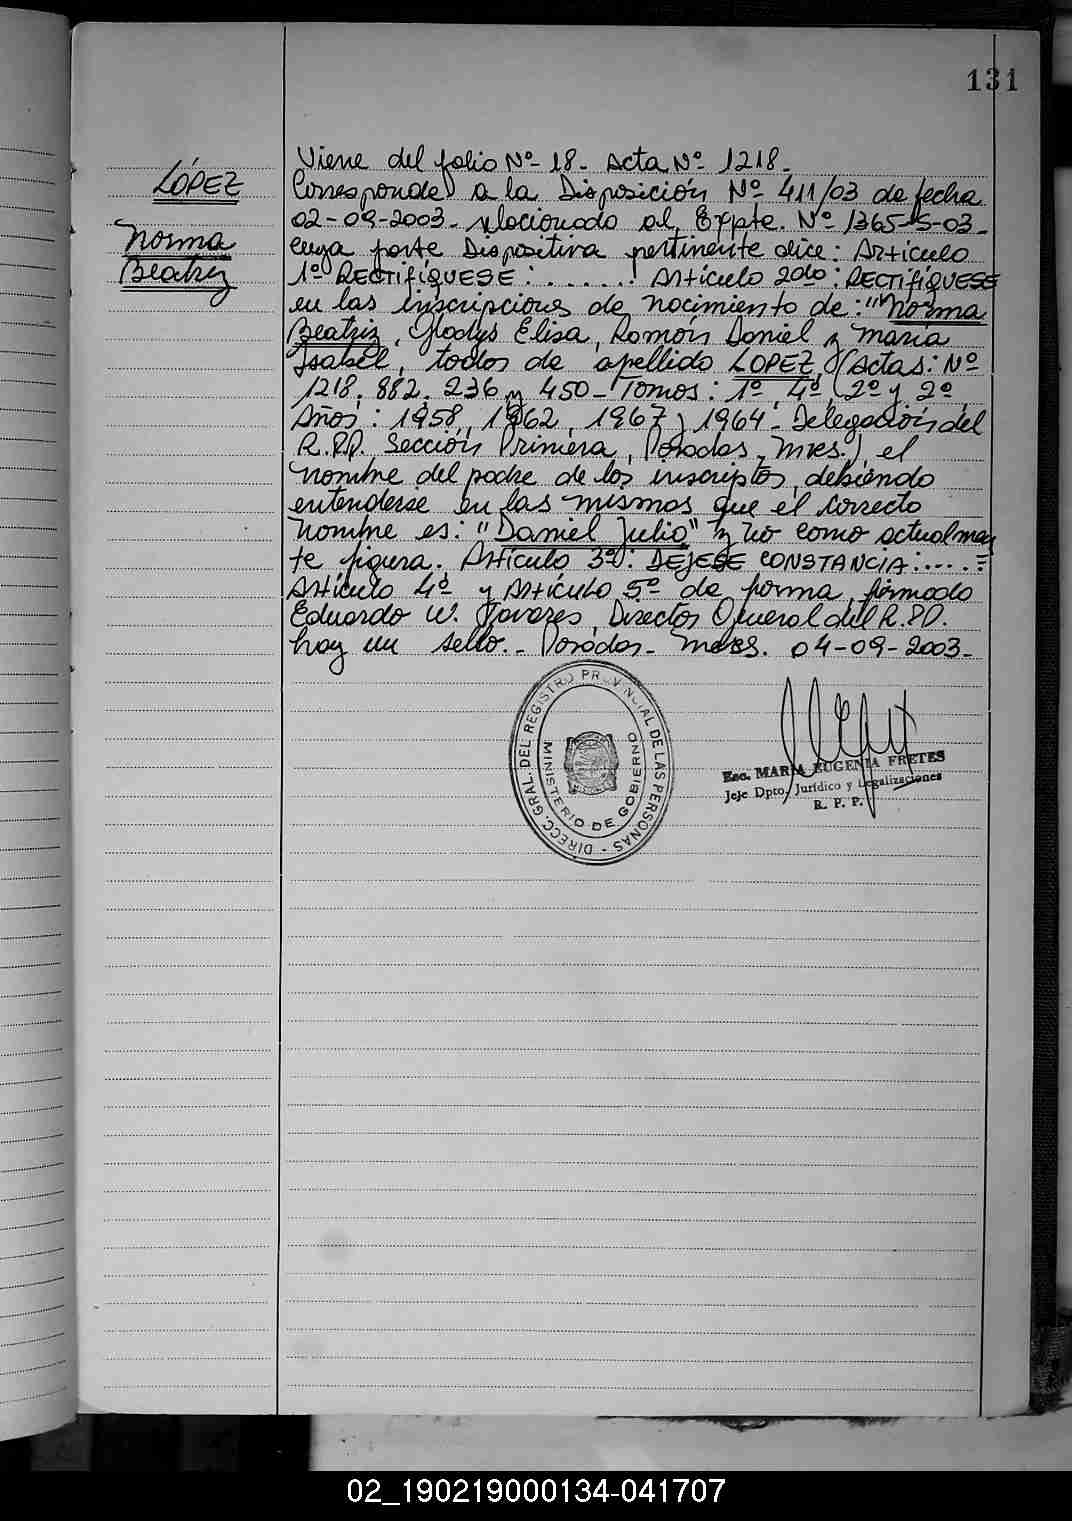 131
LÓPEZ
Norma
Beatriz
Viene del folio Nº- 18- Acta Nº 1218-
Corresponde a la Disposición Nº 411/03 de fecha
02-09-2003- relacionado al Expte. Nº 1365-S-03-
cuya parte Dispositiva pertinente dice: Artículo
1º RECTIFÍQUESE: ...... Artículo 2do: RECTIFÍQUESE
en las inscripciones de nacimiento de: "Norma
Beatriz, Gladys Elisa, Ramón Daniel y María
Isabel, todos de apellido LOPEZ, (Actas: Nº
1218, 882, 236 y 450- Tomos: 1º, 4º, 2º y 2º,
Años: 1958, 1962, 1967 y 1964- Delegación del
R.P.P. Sección Primera, Posadas, Mnes.) el
nombre del padre de los inscriptos, debiendo
entenderse en las mismas que el correcto
nombre es: "Daniel Julio" y no como actualmen
te figura. Artículo 3º: DEJESE CONSTANCIA:.....=
Artículo 4º y Artículo 5º de forma, firmado
Eduardo W. Tavares, Director General del R.P.P.
hay un sello.- Posadas- Mnes. 04-09-2003-
DIRECC. GRAL. DEL REGISTRO PROVINCIAL DE LAS PERSONAS -
MINISTERIO DE GOBIERNO
Esc. MARIA EUGENIA FRETES
Jefe Dpto. Jurídico y Legalizaciones
R. P. P.
02_190219000134-041707